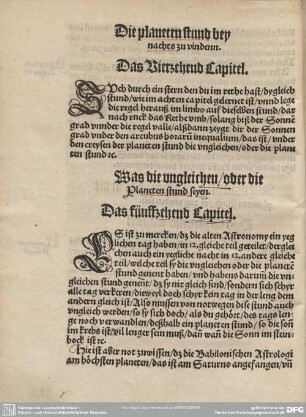 Die planeten stund bey
nachtes zu vindenn.
Das Vierzehend Capitel.
SUch durch ein stern den du im rethe hast/ dy gleich
stund/ wie im achten capitel gelernet ist/ vnnd lege
die regel herauß im limbo auff dieselben stund/ dar
nach ruck das Rethe vmb/ solang biß der Sonne
grad vnnder die regel valle/ alsdann zeygt dir der Sonnen
grad vnder den arcubus horarū inequalium/ das ist/ vnder
den creysen der planeten stund die vngleichen/ oder die plane
ten stund ꝛc.
Was die vngleichen/ oder die
Planeten stund seyen.
Das fünffzehend Capitel.
ES ist zu mercken/ dz die alten Astronomy ein yeg
lichen tag haben/ in 12. gleiche teil geteilet/ der glei
chen auch ein yegliche nacht in 12. andere gleiche
teil/ welche teil sy die vngleichen oder die planetē
stund genent haben/ vnd habens darumb die vn
gleichen stund genēt/ dz sy nit gleich sind/ sondern sich schyr
alle tag verkeren/ dieweyl doch schyr kein tag in der leng dem
andern gleich ist/ Also mussen von notwegen dise stund auch
vngleich werden/ so sy sich doch/ als du gehört/ des tags len
ge noch verwandlen/ deßhalb ein planeten stund/ so die soñ
im krebs ist/ vil lenger sein muß/ dañ wañ die Soñ im stein
bock ist ꝛc.
Hie ist aber not zuwissen/ dz die Babilonischen Astrologi
am höchsten planeten/ das ist/ am Saturno angefangen/ vñ